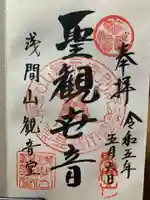 奉拝
令和五年
五月六日
聖観世音
浅間山観音堂